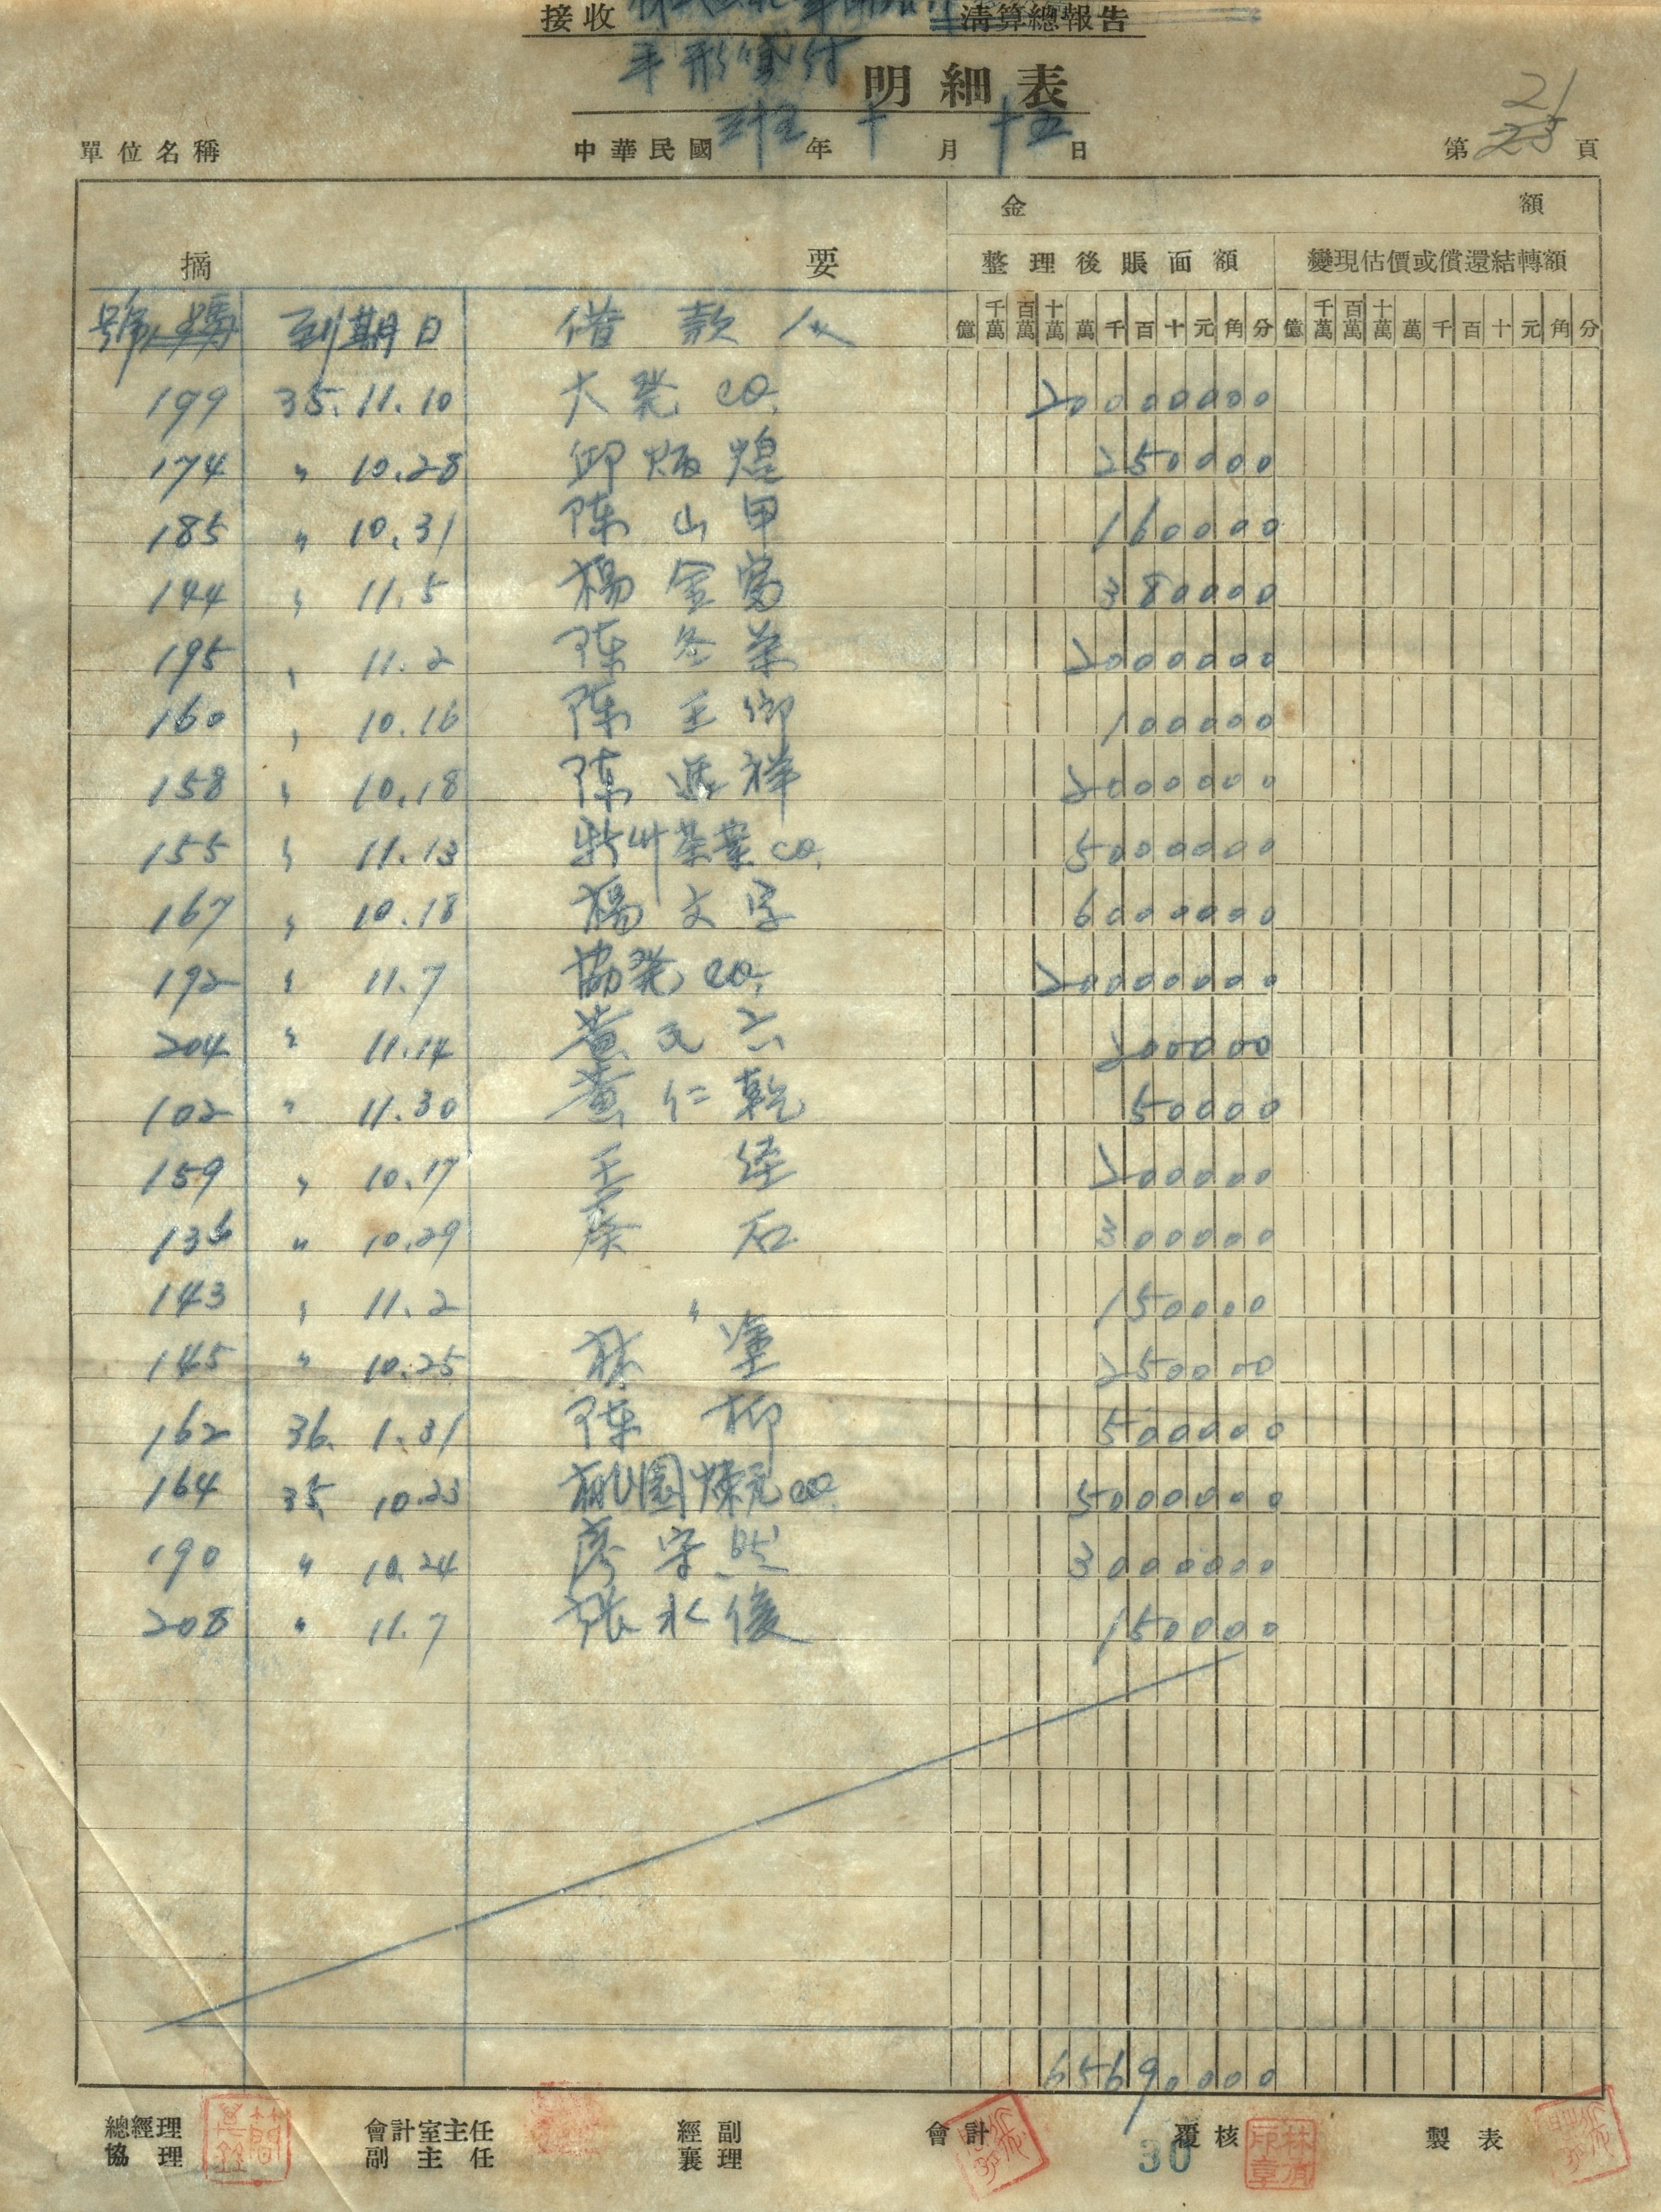 接收 清算總報告
手形貸付
明細表
單位名稱 中華民國 三十五 年 十 月 十五 日 第 21 25 頁
金 額
摘 要 整理後賬面額 變現估價或償還結轉額
億 千萬 百萬 十萬 萬 千 百 十 元 角 分 億 千萬 百萬 十萬 萬 千 百 十 元 角 分
號碼 到期日 借款人
199 35. 11. 10 大発 co. 20000000
174 〃 10.28 邱炳煌 250000
185 〃 10.31 陳山甲 160000
144 〃 11.5 楊金 380000
195 〃 11.2 陳 2000000
160 〃 10.16 陳王 100000
158 〃 10.18 陳進祥 2000000
155 〃 11.13 新竹茶業 co. 5000000
167 〃 10.18 楊文 6000000
192 〃 11.7 協発 co. 20000000
204 〃 11.14 黃 200000
102 〃 11.30 黃仁乾 50000
159 〃 10.17 王 經 200000
136 〃 10.29 蔡 石 300000
143 〃 11.2 〃 150000
145 〃 10.25 林 塗 250000
162 36. 1.31 陳 柳 500000
164 35. 10.23 桃園煉瓦 co. 5000000
190 〃 10.24 守然 3000000
208 〃 11.7 張永俊 150000
65690000
總經理 會計室主任 經副 會計 覆核 製表
協理 副主任 襄理
30